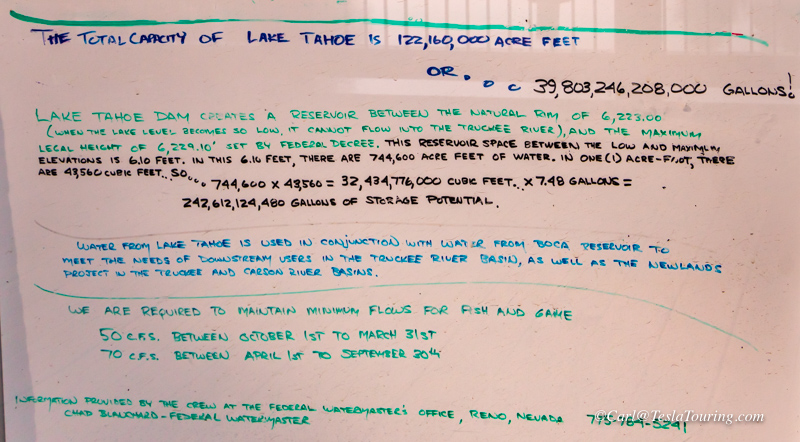 THE TOTAL CAPACITY OF LAKE TAHOE IS 122,160,000 ACRE FEET
OR... 39,803,246,208,000 GALLONS!
LAKE TAHOE DAM CREATES A RESERVOIR BETWEEN THE NATURAL RIM OF 6,223.00
(WHEN THE LAKE LEVEL BECOMES SO LOW, IT CANNOT FLOW INTO THE TRUCKEE RIVER), AND THE MAXIMUM
LEGAL HEIGHT OF 6,229.10' SET BY FEDERAL DECREE. THIS RESERVOIR SPACE BETWEEN THE LOW AND MAXIMUM
ELEVATIONS IS 6.10 FEET. IN THIS 6.10 FEET, THERE ARE 744,600 ACRE FEET OF WATER. IN ONE (1) ACRE-FOOT, THERE
ARE 43,560 CUBIC FEET. SO...
744,600 X 43,560 = 32,434,776,000 CUBIC FEET. X 7.48 GALLONS =
242,612,124,480 GALLONS OF STORAGE POTENTIAL.
WATER FROM LAKE TAHOE IS USED IN CONJUNCTION WITH WATER FROM BOCA RESERVOIR TO
MEET THE NEEDS OF DOWNSTREAM USERS IN THE TRUCKEE RIVER BASIN, AS WELL AS THE NEWLANDS
PROJECT IN THE TRUCKEE AND CARSON RIVER BASINS.
WE ARE REQUIRED TO MAINTAIN MINIMUM FLOWS FOR FISH AND GAME
50 C.F.S. BETWEEN OCTOBER 1ST TO MARCH 31ST
70 C.F.S. BETWEEN APRIL 1ST TO SEPTEMBER 30th
INFORMATION PROVIDED BY THE CREW AT THE FEDERAL WATERMASTER'S OFFICE, RENO, NEVADA
CHAD BLANCHARD-FEDERAL WATERMASTER
©Carl@TeslaTouring.com